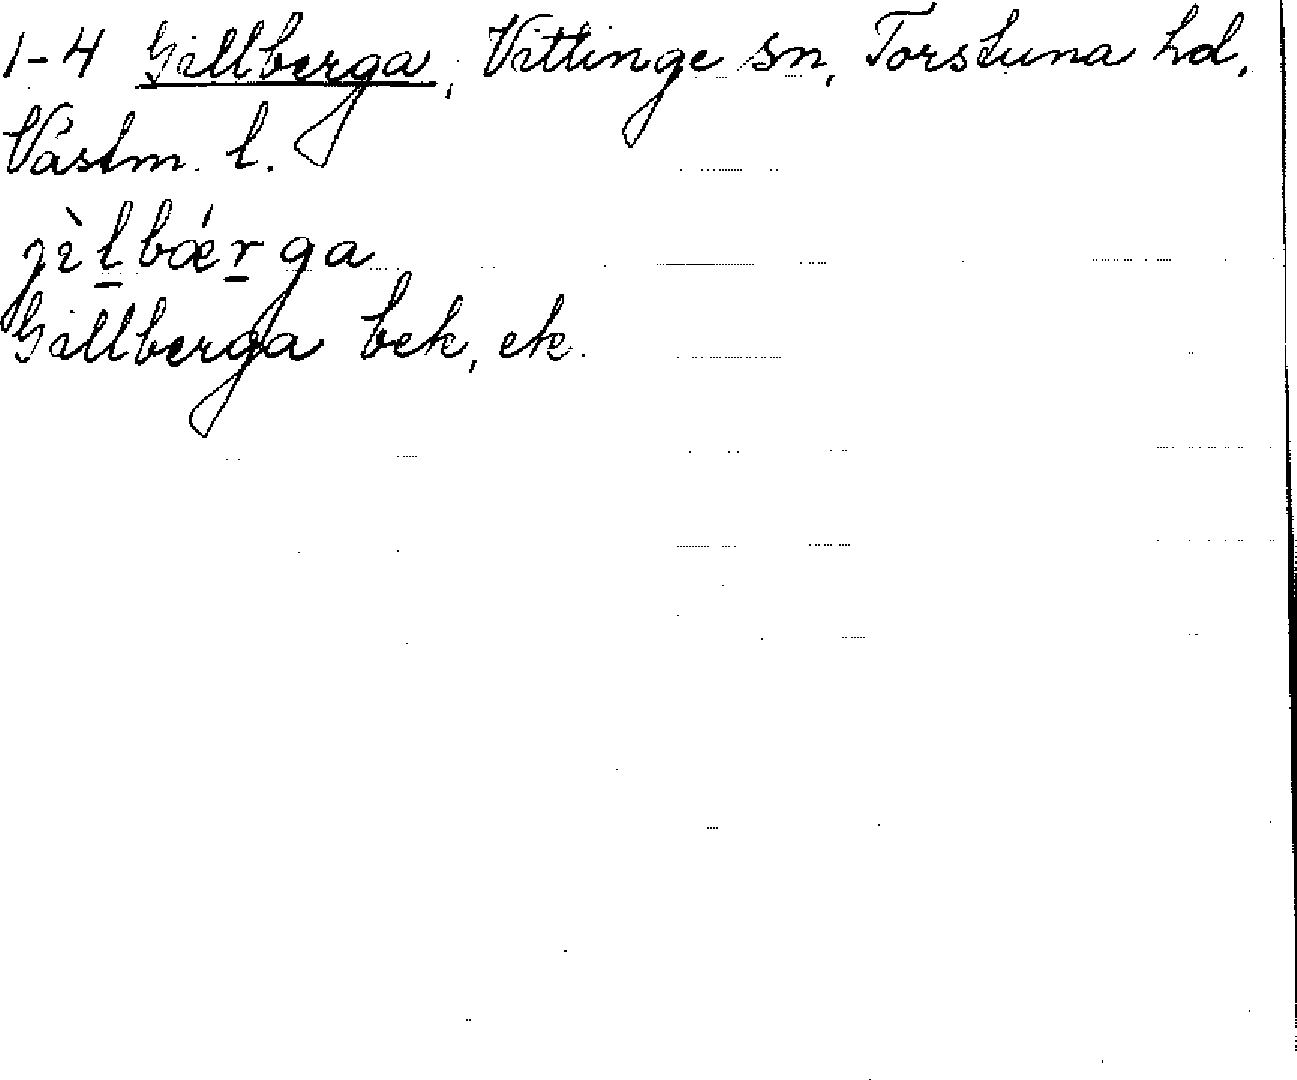 1-4 Gillberga, Vittinge sn, Torstuna hd,
Västm. l.
jìl̲bǽr̲ga
Gillberga bek, ek.